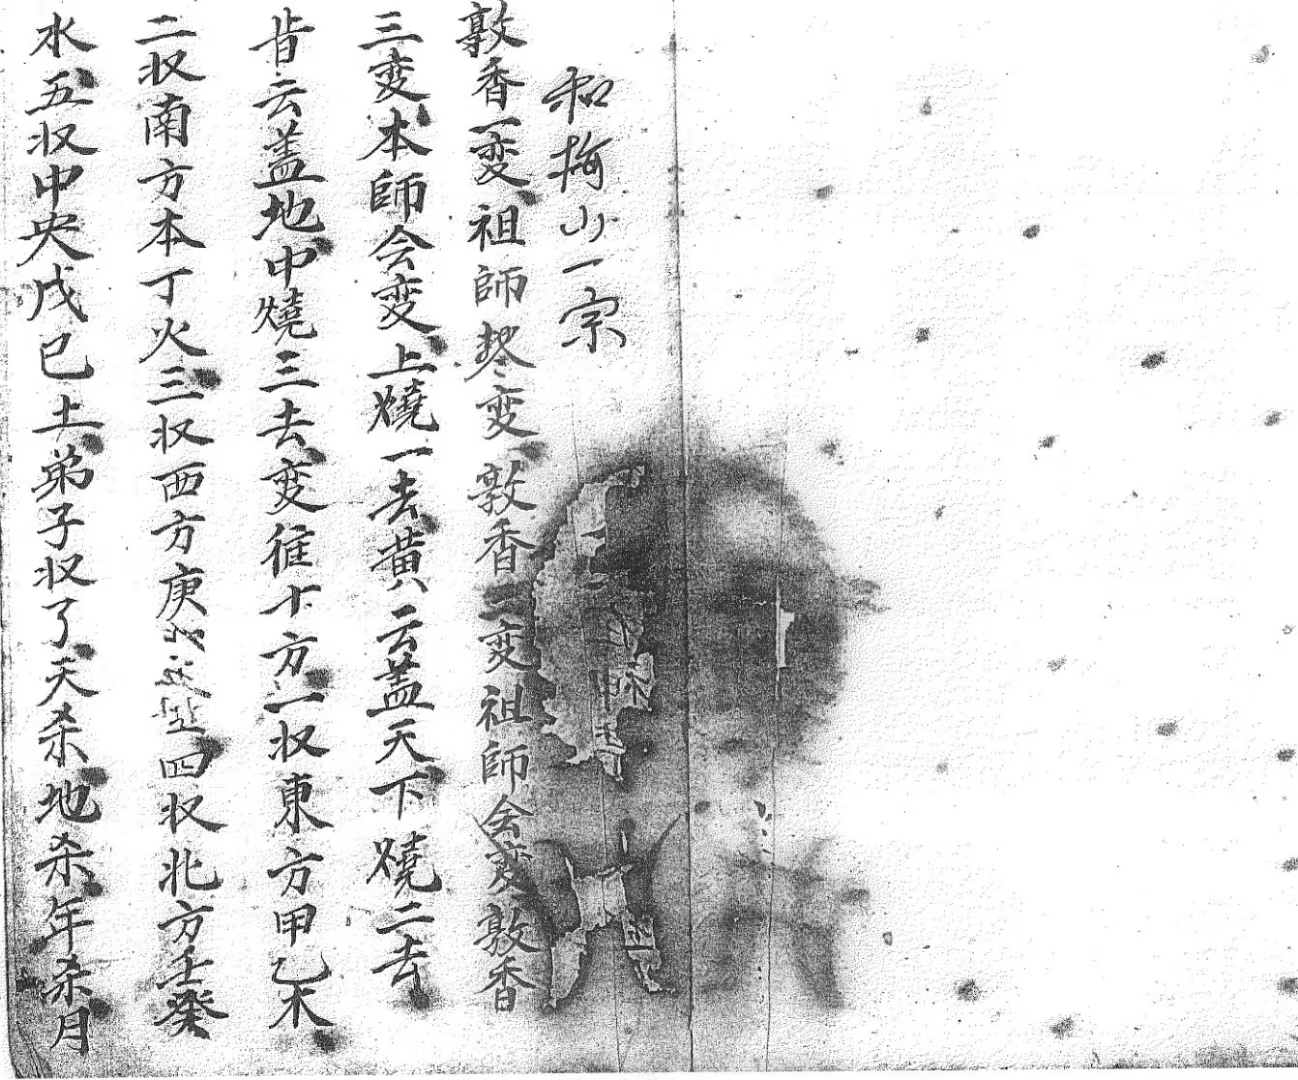 和梅山一宗
敦香一变祖師替变敦香二变祖師会变敦香
三变本師会变上燒一去黄云盖天下燒二去
昔云盖地中燒三去变徃十方一収東方甲乙木
二収南方本丁火三収西方庚四収北方壬癸
水五収中央戊己土弟子収了天杀地杀年杀月